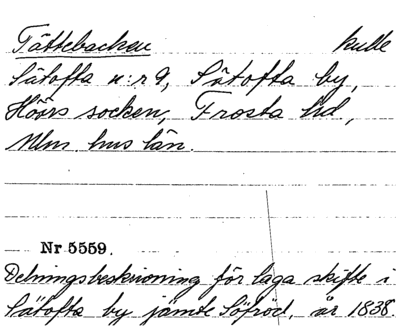 Tättebacken kulle
Sätofta n:r 9, Sätofta by,
Höörs socken, Frosta hd,
Mlm. hus län.
Nr 5559.
Delningsbeskrivning för laga skifte i
Sätofta by jämte Söfröd, år 1838.